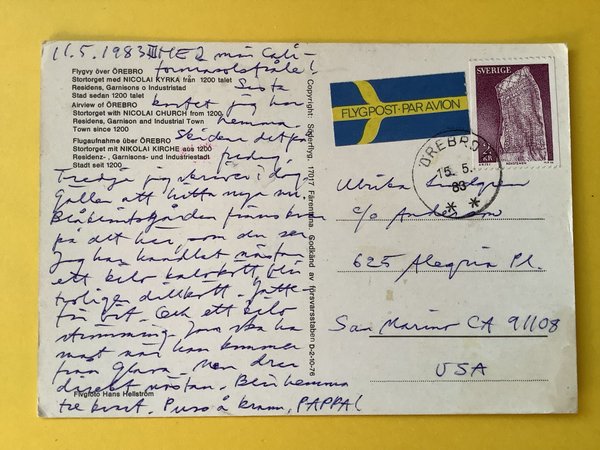 11.5.1983 HEJ min Cali-
forniasolstråle!
Flygvy över ÖREBRO
Stortorget med NICOLAI KYRKA från 1200 talet
Residens, Garnisons o Industristad
Stad sedan 1200 talet
Airview of ÖREBRO
Stortorget with NICOLAI CHURCH from 1200
Residens, Garnison and Industrial Town
Town since 1200
Flugaufnahme über ÖREBRO
Stortorget mit NIKOLAI KIRCHE aus 1200
Residenz-, Garnisons- und Industriestadt
Stadt seit 1200
Sista
kortet jag har
hemma.
Skickar det på
fredag.
Tredje jag skriver i dag.
Gäller att hitta nya nu.
på det här, som du ser
Jag har handlat nästan
ett kilo kalvkött, blir
troligen dillkött. Jätte-
fin bit. Och ett kilo
strömming. Jens ska ha
mat när han kommer
från Glava. Men drar
direkt nästan. Blir hemma
tre kvart. Puss å kram, PAPPA!
Flygfoto Hans Hellström
Copyright: Söderflyg. 17017 Färentuna. Godkänd av försvarsstaben D-2-10-76
FLYGPOST·PAR AVION
SVERIGE
ÖREBRO
15.5.
83
Ulrika
c/o Anderson
625 Alegria Pl.
San Marino CA 91108
USA